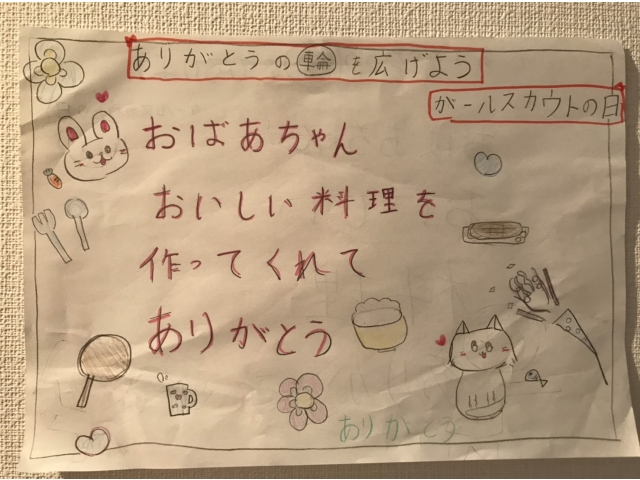 ありがとうの輪を広げよう
ガールスカウトの日
おばあちゃん
おいしい料理を
作ってくれて
ありがとう
ありがとう